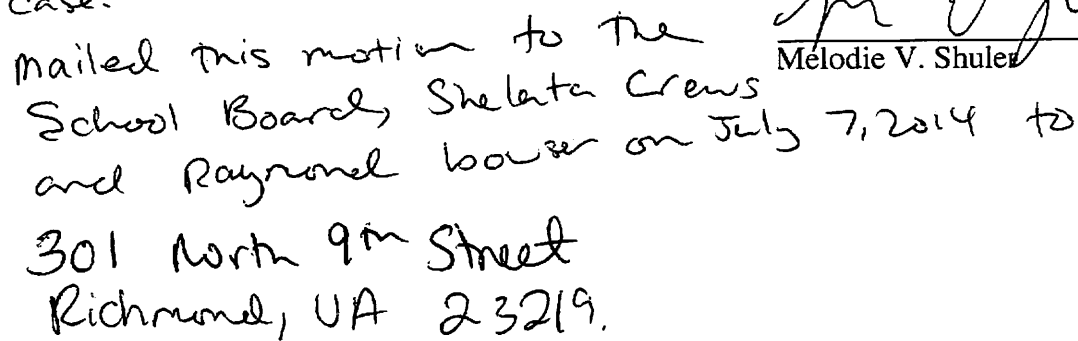 case.
mailed this motion to the
Mélodie V. Shuler
School Board, Shelata Crews
and Raymond bowser on July 7, 2014 to
301 North 9th Street
Richmond, VA 23219.